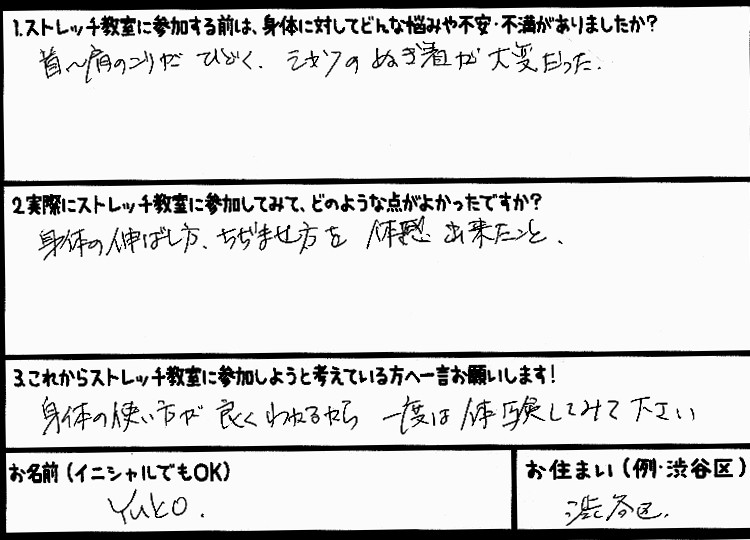 1.ストレッチ教室に参加する前は、身体に対してどんな悩みや不安・不満がありましたか？
首〜肩のコリがひどく、シャツのぬぎ着が大変だった.
2.実際にストレッチ教室に参加してみて、どのような点がよかったですか？
身体の伸ばし方、ちぢませ方を体感出来たこと、
3.これからストレッチ教室に参加しようと考えている方へ一言お願いします！
身体の使い方が良くわかるから一度は体験してみて下さい
お名前（イニシャルでもOK）
Yuko.
お住まい（例・渋谷区）
渋谷区.